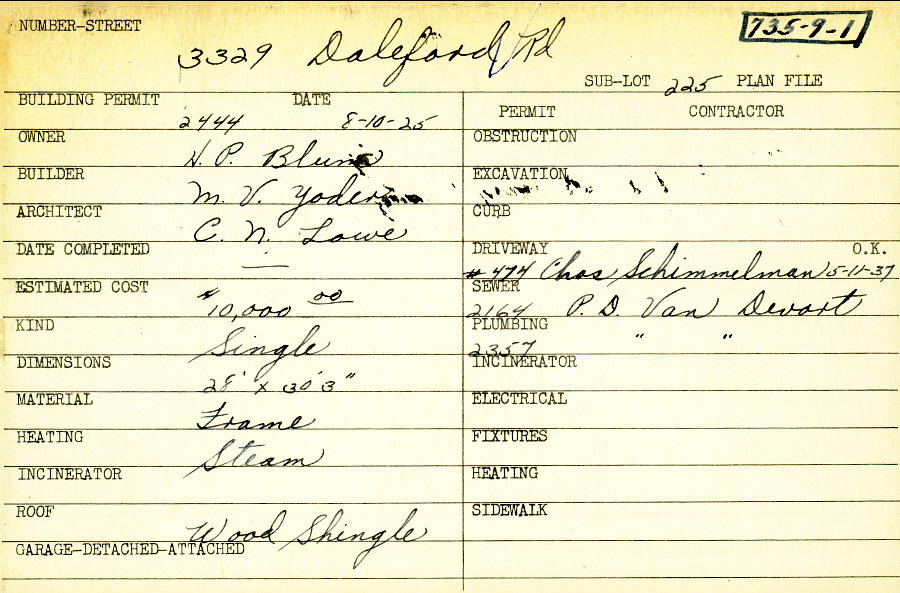 NUMBER-STREET 3329 Daleford Rd 735-9-1
SUB-LOT 225 PLAN FILE
BUILDING PERMIT 2444 DATE 8-10-25
PERMIT CONTRACTOR
OWNER H. P. Blum
OBSTRUCTION
BUILDER M. V. Yoder
EXCAVATION
ARCHITECT C. N. Lowe
CURB
DATE COMPLETED —
DRIVEWAY # 474 Chas Schimmelman O.K. 5-11-37
ESTIMATED COST $10,000 00
SEWER 2164 P. D. Van Devort
KIND Single
PLUMBING 2357 " "
DIMENSIONS 28' x 30'3"
INCINERATOR
MATERIAL Frame
ELECTRICAL
HEATING Steam
FIXTURES
INCINERATOR
HEATING
ROOF Wood Shingle
SIDEWALK
GARAGE-DETACHED-ATTACHED